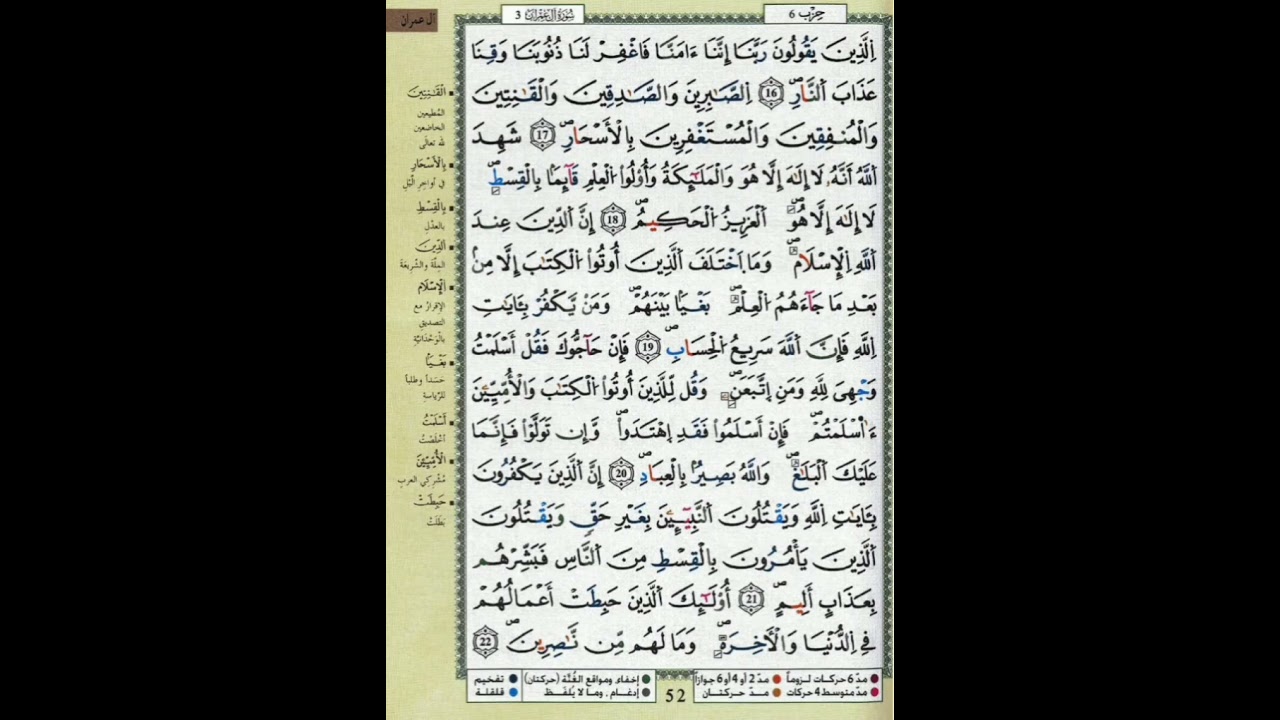 حِزْب 6
سُورَةُ آلِ عِمْرَان 3
آل عمران
اِ۬لذِينَ يَقُولُونَ رَبَّنَا إِنَّنَا ءَامَنَّا فَاغْفِرْ لَنَا ذُنُوبَنَا وَقِنَا
عَذَابَ اَ۬لنَّارِ 16 اِ۬لصَّٰبِرِينَ وَالصَّٰدِقِينَ وَالْقَٰنِتِينَ
وَالْمُنفِقِينَ وَالْمُسْتَغْفِرِينَ بِالْأَسْحَارِ 17 شَهِدَ
اَ۬للَّهُ أَنَّهُۥ لَا إِلَٰهَ إِلَّا هُوَ وَالْمَلَٰٓئِكَةُ وَأُوْلُواْ اُ۬لْعِلْمِ قَآئِماَۢ بِالْقِسْطِ
لَا إِلَٰهَ إِلَّا هُوَ اَ۬لْعَزِيزُ اُ۬لْحَكِيمُ 18 إِنَّ اَ۬لدِّينَ عِندَ
اَ۬للَّهِ اِ۬لْإِسْلَٰمُ وَمَا اَ۪خْتَلَفَ اَ۬لذِينَ أُوتُواْ اُ۬لْكِتَٰبَ إِلَّا مِنۢ
بَعْدِ مَا جَآءَهُمُ اُ۬لْعِلْمُ بَغْياَۢ بَيْنَهُمْ وَمَنْ يَّكْفُرْ بِـَٔايَٰتِ
اِ۬للَّهِ فَإِنَّ اَ۬للَّهَ سَرِيعُ اُ۬لْحِسَابِ 19 فَإِنْ حَآجُّوكَ فَقُلْ أَسْلَمْتُ
وَجْهِى لِلهِ وَمَنِ اِ۪تَّبَعَنِ وَقُل لِّلذِينَ أُوتُواْ اُ۬لْكِتَٰبَ وَالْأُمِّيِّـۧنَ
ءَٰا۬سْلَمْتُمْ فَإِنْ أَسْلَمُواْ فَقَدِ اِ۪هْتَدَواْ وَّإِن تَوَلَّوْاْ فَإِنَّمَا
عَلَيْكَ اَ۬لْبَلَٰغُ وَاللَّهُ بَصِيرُۢ بِالْعِبَادِ 20 إِنَّ اَ۬لذِينَ يَكْفُرُونَ
بِـَٔايَٰتِ اِ۬للَّهِ وَيَقْتُلُونَ اَ۬لنَّبِيٓـِٕينَ بِغَيْرِ حَقٍّ وَيَقْتُلُونَ
اَ۬لذِينَ يَأْمُرُونَ بِالْقِسْطِ مِنَ اَ۬لنَّاسِ فَبَشِّرْهُم
بِعَذَابٍ أَلِيمٍ 21 أُوْلَٰٓئِكَ اَ۬لذِينَ حَبِطَتْ أَعْمَٰلُهُمْ
فِى اِ۬لدُّنْيَا وَالْأَخِرَةِ وَمَا لَهُم مِّن نَّٰصِرِينَ 22
الْقَٰنِتِينَ
المُطيعين
الخاضعين
لله تعالى
بِالْأَسْحَارِ
في أواخِرِ اللَّيلِ
بِالْقِسْطِ
بالعدْلِ
الدِّينَ
المِلَّةَ والشَّريعَةَ
الْإِسْلَٰمُ
الإقرارُ مع
التصديقِ
بالوَحْدَانيَّةِ
بَغْياً
حَسَداً وطلباً
للرِّياسَةِ
أَسْلَمْتُ
أخْلَصْتُ
الْأُمِّيِّـۧنَ
مُشْرِكي العربِ
حَبِطَتْ
بَطَلَتْ
مدّ 6 حركات لـزوماً مدّ 2 أو 4 أو 6 جوازاً إخفاء، ومواقع الغُنَّة (حركتان) تفخيم
مدّ متوسط 4 حركات مـدّ حركتـان إدغام ، وما لا يُلفَـظ قلقلة
52